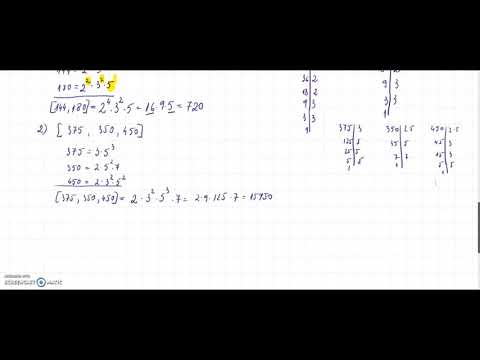 180 = 2² · 3² · 5
[144, 180] = 2⁴ · 3² · 5 = 16 · 9 · 5 = 720
2) [375, 350, 450]
375 = 3 · 5³
350 = 2 · 5² · 7
450 = 2 · 3² · 5²
[375, 350, 450] = 2 · 3² · 5³ · 7 = 2 · 9 · 125 · 7 = 15750
36 | 2
18 | 2
9 | 3
3 | 3
1
9 | 3
3 | 3
1
375 | 3
125 | 5
25 | 5
5 | 5
1
350 | 2·5
35 | 5
7 | 7
1
450 | 2·5
45 | 3
15 | 3
5 | 5
1
SCREENCAST MATIC